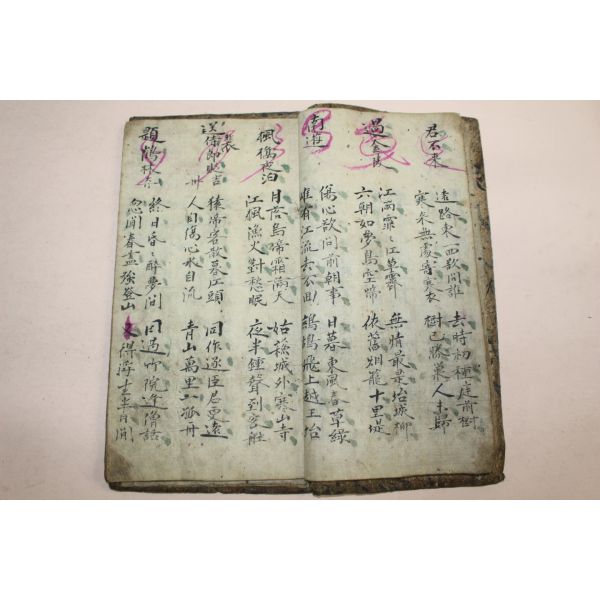 君不來
遠路東西欲問誰 去時初種庭前樹
寒來無處寄寒衣 樹已勝巢人未歸
過金陵
江雨霏〻江草齊 無情最是坮城柳
六朝如夢鳥空啼 依舊烟籠十里堤
南遊
傷心欲問前朝事 日暮東風春草綠
惟有江流去不回 鷓鴣飛上越王坮
楓橋夜泊
月落烏啼霜滿天 姑蘇城外寒山寺
江楓漁火對愁眠 夜半鍾聲到客船
送裴侍郎歸吉州
猿啼客散暮江頭 同作逐臣君更遠
人自傷心水自流 青山萬里一孤舟
題鶴林寺
終日昏〻醉夢間 因過竹院逢僧話
忽聞春盡強登山 又得浮生半日閑